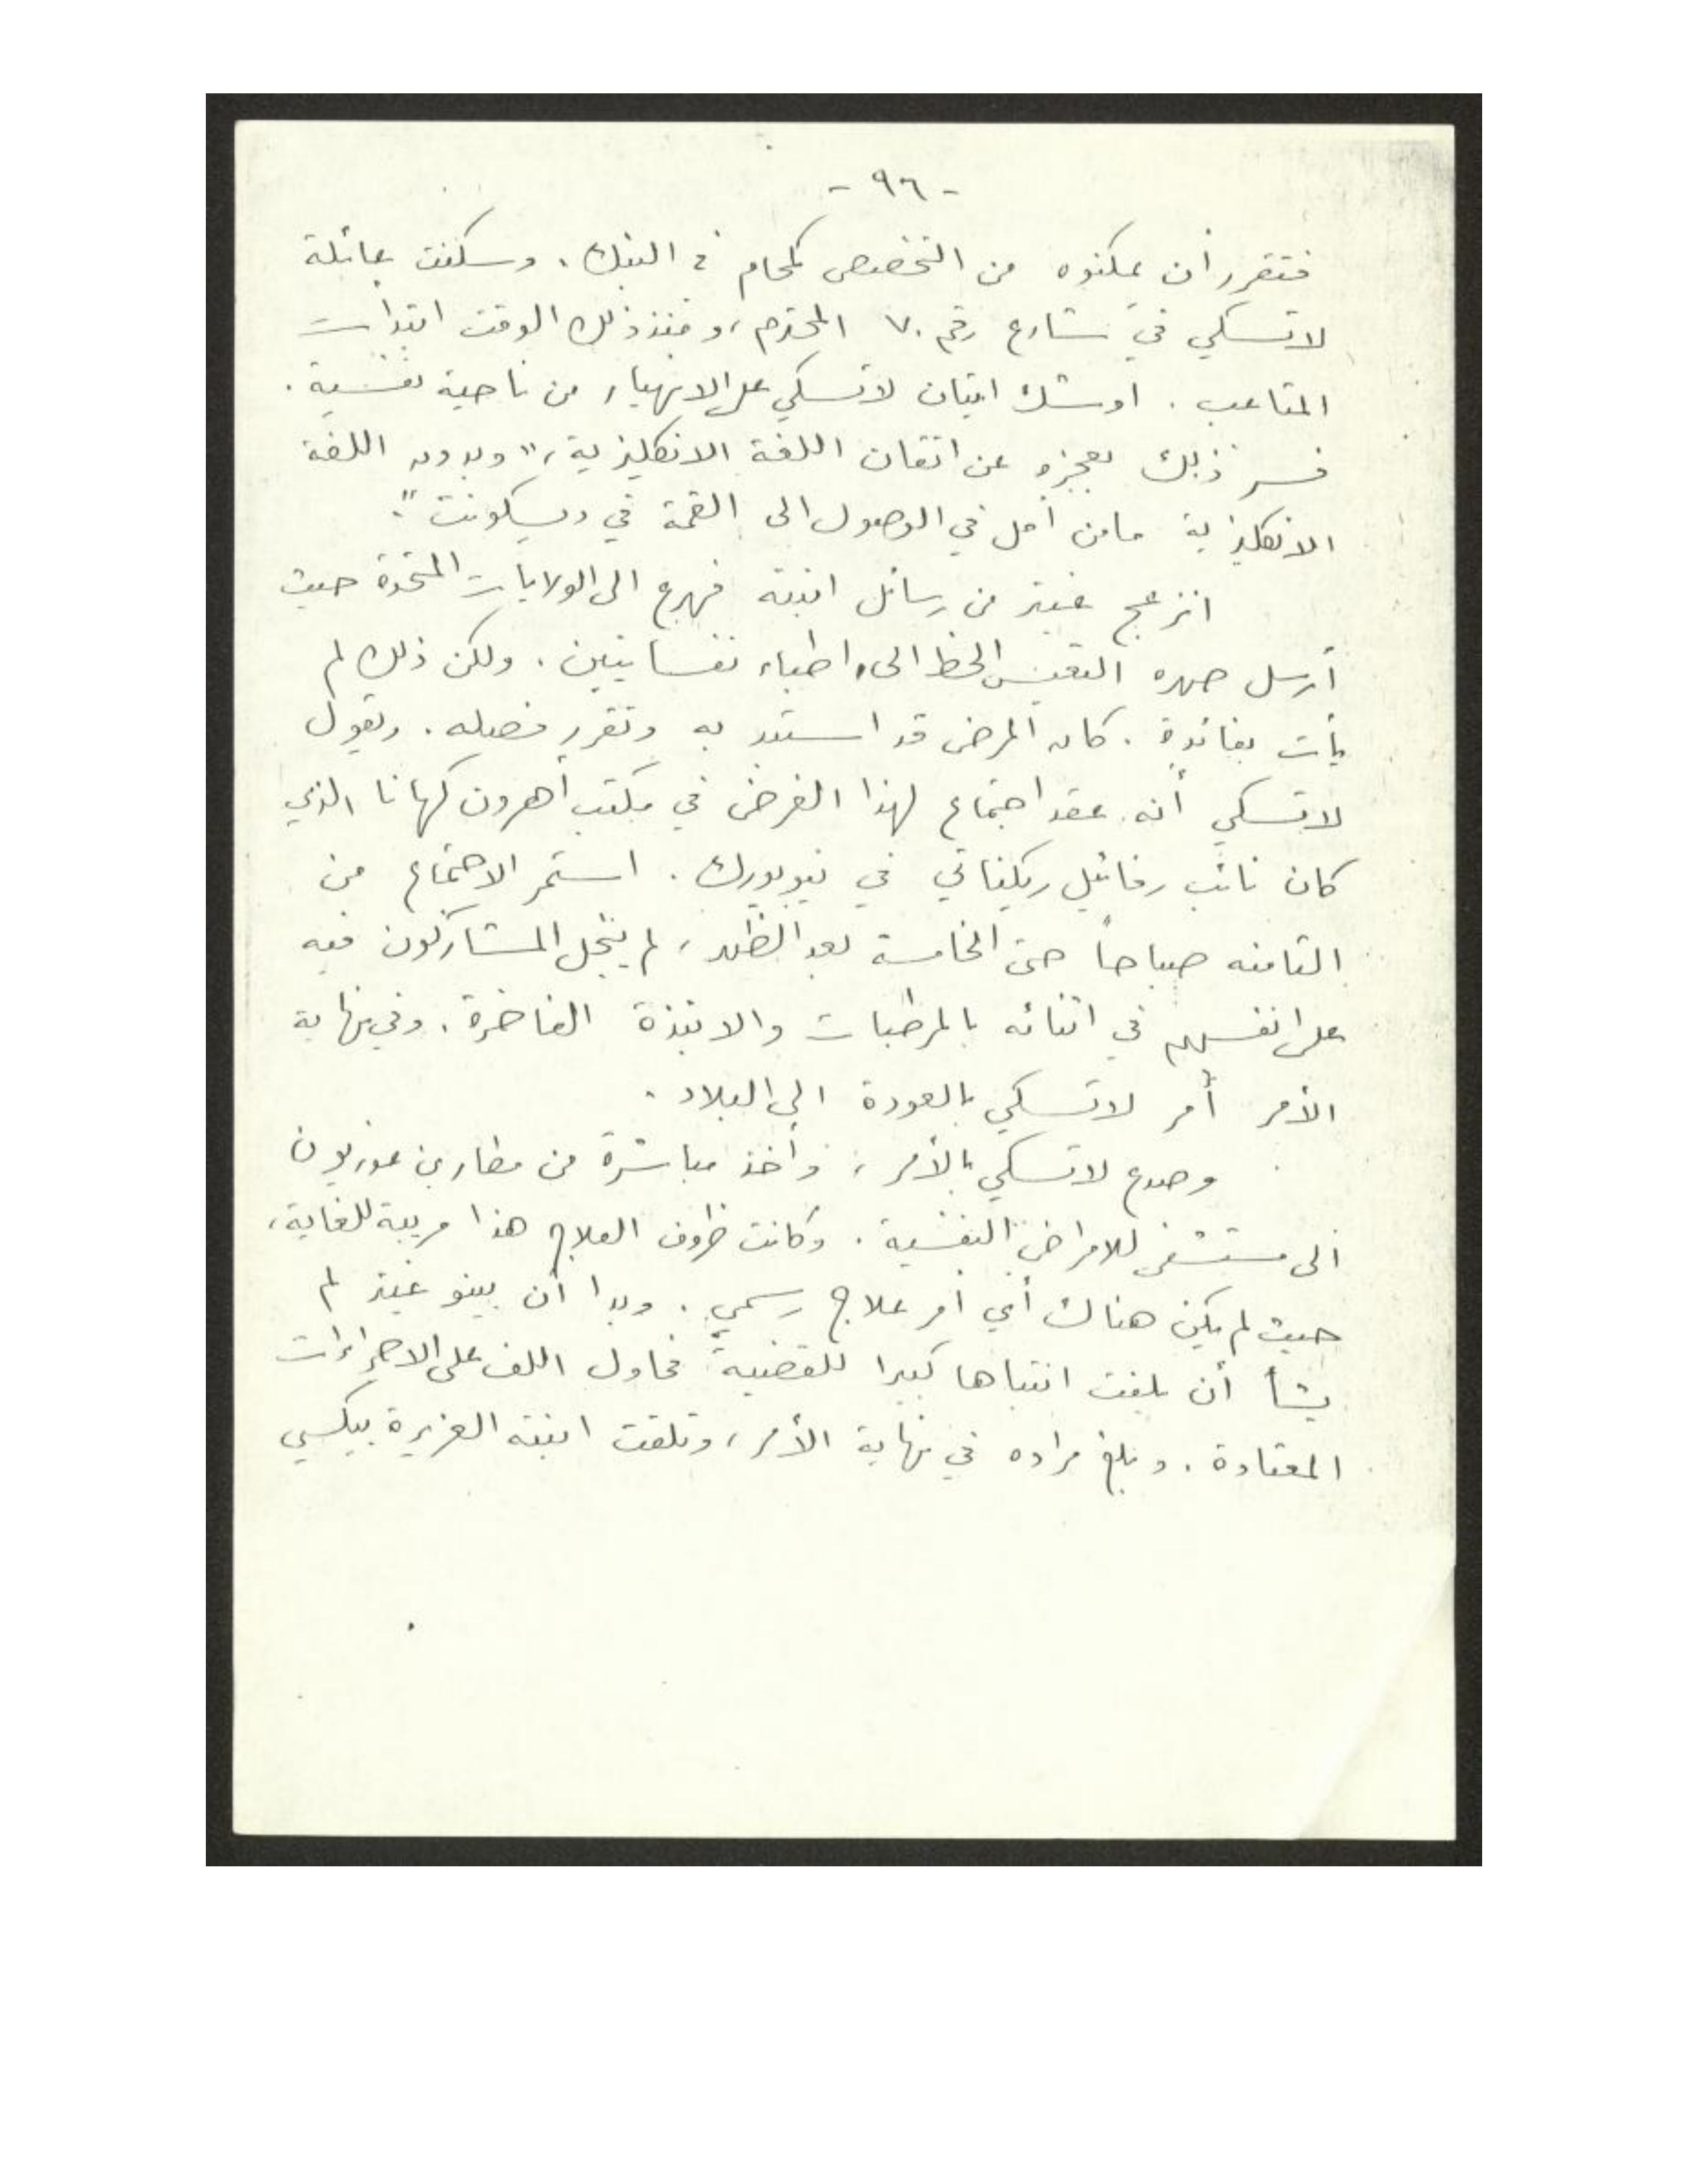 - ٩٦ -
فتقرر أن يمكنوه من التخصص كمحام في البنك . وسكنت عائلة
لاتسكي في شارع رقم ٧٠ المحترم ، ومنذ ذلك الوقت ابتدأت
المتاعب . اوشك ايتان لاتسكي على الانهيار من ناحية نفسية .
فسر ذلك بعجزه عن اتقان اللغة الانكليزية ، " وبدون اللغة
الانكليزية مامن أمل في الوصول الى القمة في ديسكونت " .
انزعج غيتر من رسائل ابنته فهرع الى الولايات المتحدة حيث
أرسل صهره التعيس الحظ الى اطباء نفسانيين . ولكن ذلك لم
يأت بفائدة . كان المرض قد استبد به وتقرر فصله . ويقول
لاتسكي أنه عقد اجتماع لهذا الغرض في مكتب أهرون كهانا الذي
كان نائب رفائيل ريكناتي في نيويورك . استمر الاجتماع من
الثامنه صباحاً حتى الخامسة بعد الظهر ، لم يبخل المشاركون فيه
على انفسهم في اثنائه بالمرطبات والانبذة الفاخرة . وفي نهاية
الأمر أُمر لاتسكي بالعودة الى البلاد .
وصدع لاتسكي بالأمر ، وأخذ مباشرة من مطار بن غوريون
الى مستشفى للامراض النفسية . وكانت ظروف العلاج هذا مريبة للغاية ،
حيث لم يكن هناك أي أمر علاج رسمي . وبدا أن بينو غيتر لم
يشأ أن يلفت انتباها كبيرا للقضية فحاول اللف على الاجراءات
المعتادة . وبلغ مراده في نهاية الأمر ، وتلقت ابنته العزيزة بيكسي